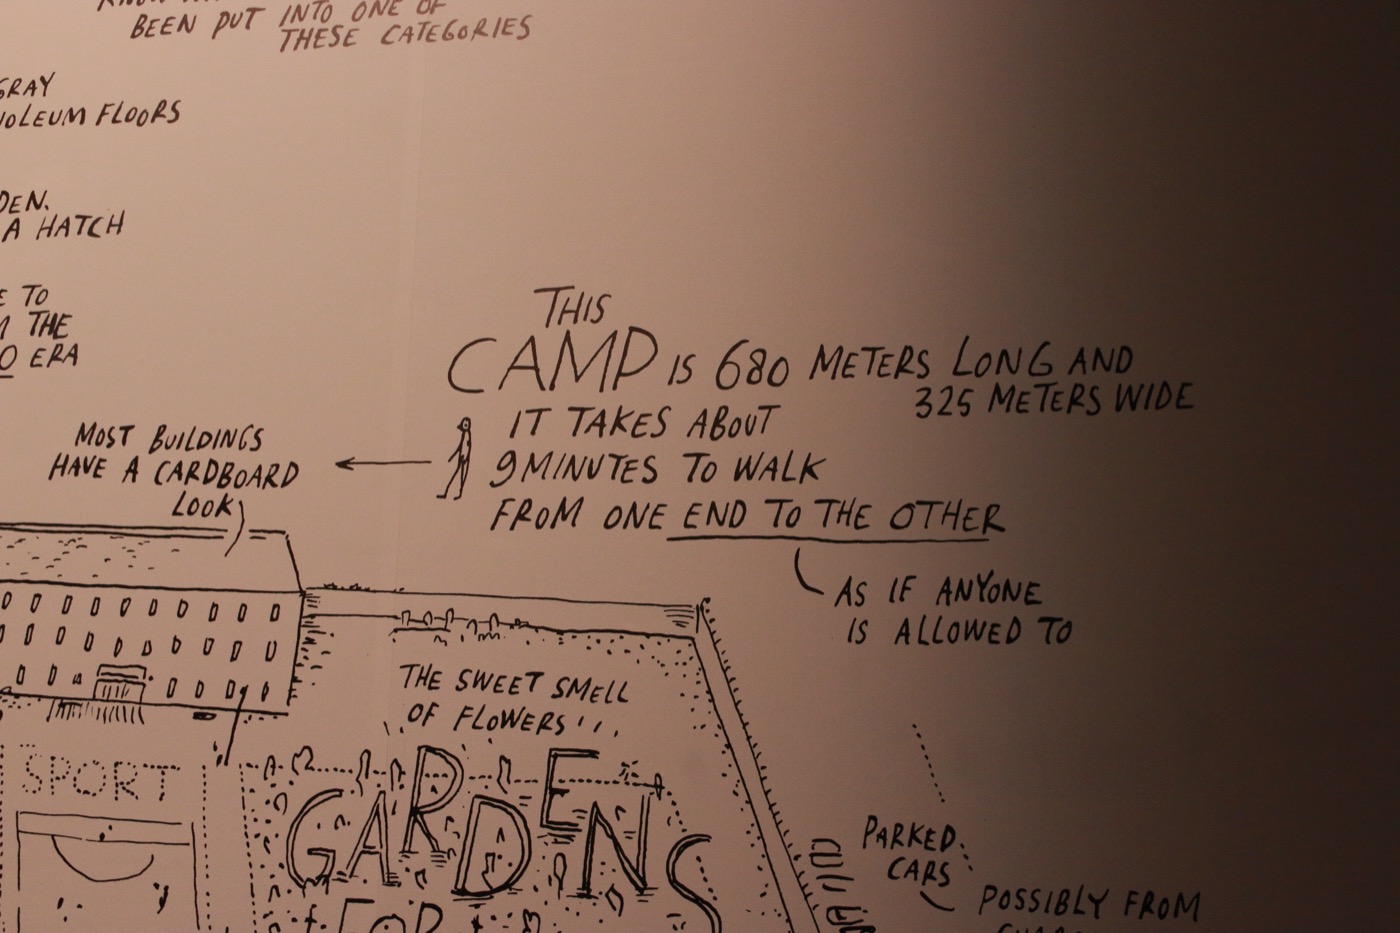 BEEN PUT INTO ONE OF
THESE CATEGORIES
GRAY
FLOORS
A HATCH
TO
THE
ERA
THIS
CAMP IS 680 METERS LONG AND
325 METERS WIDE
IT TAKES ABOUT
9 MINUTES TO WALK
FROM ONE END TO THE OTHER
AS IF ANYONE
IS ALLOWED TO
MOST BUILDINGS
HAVE A CARDBOARD
LOOK
THE SWEET SMELL
OF FLOWERS
SPORT
GARDENS
FOR
PARKED
CARS
POSSIBLY FROM